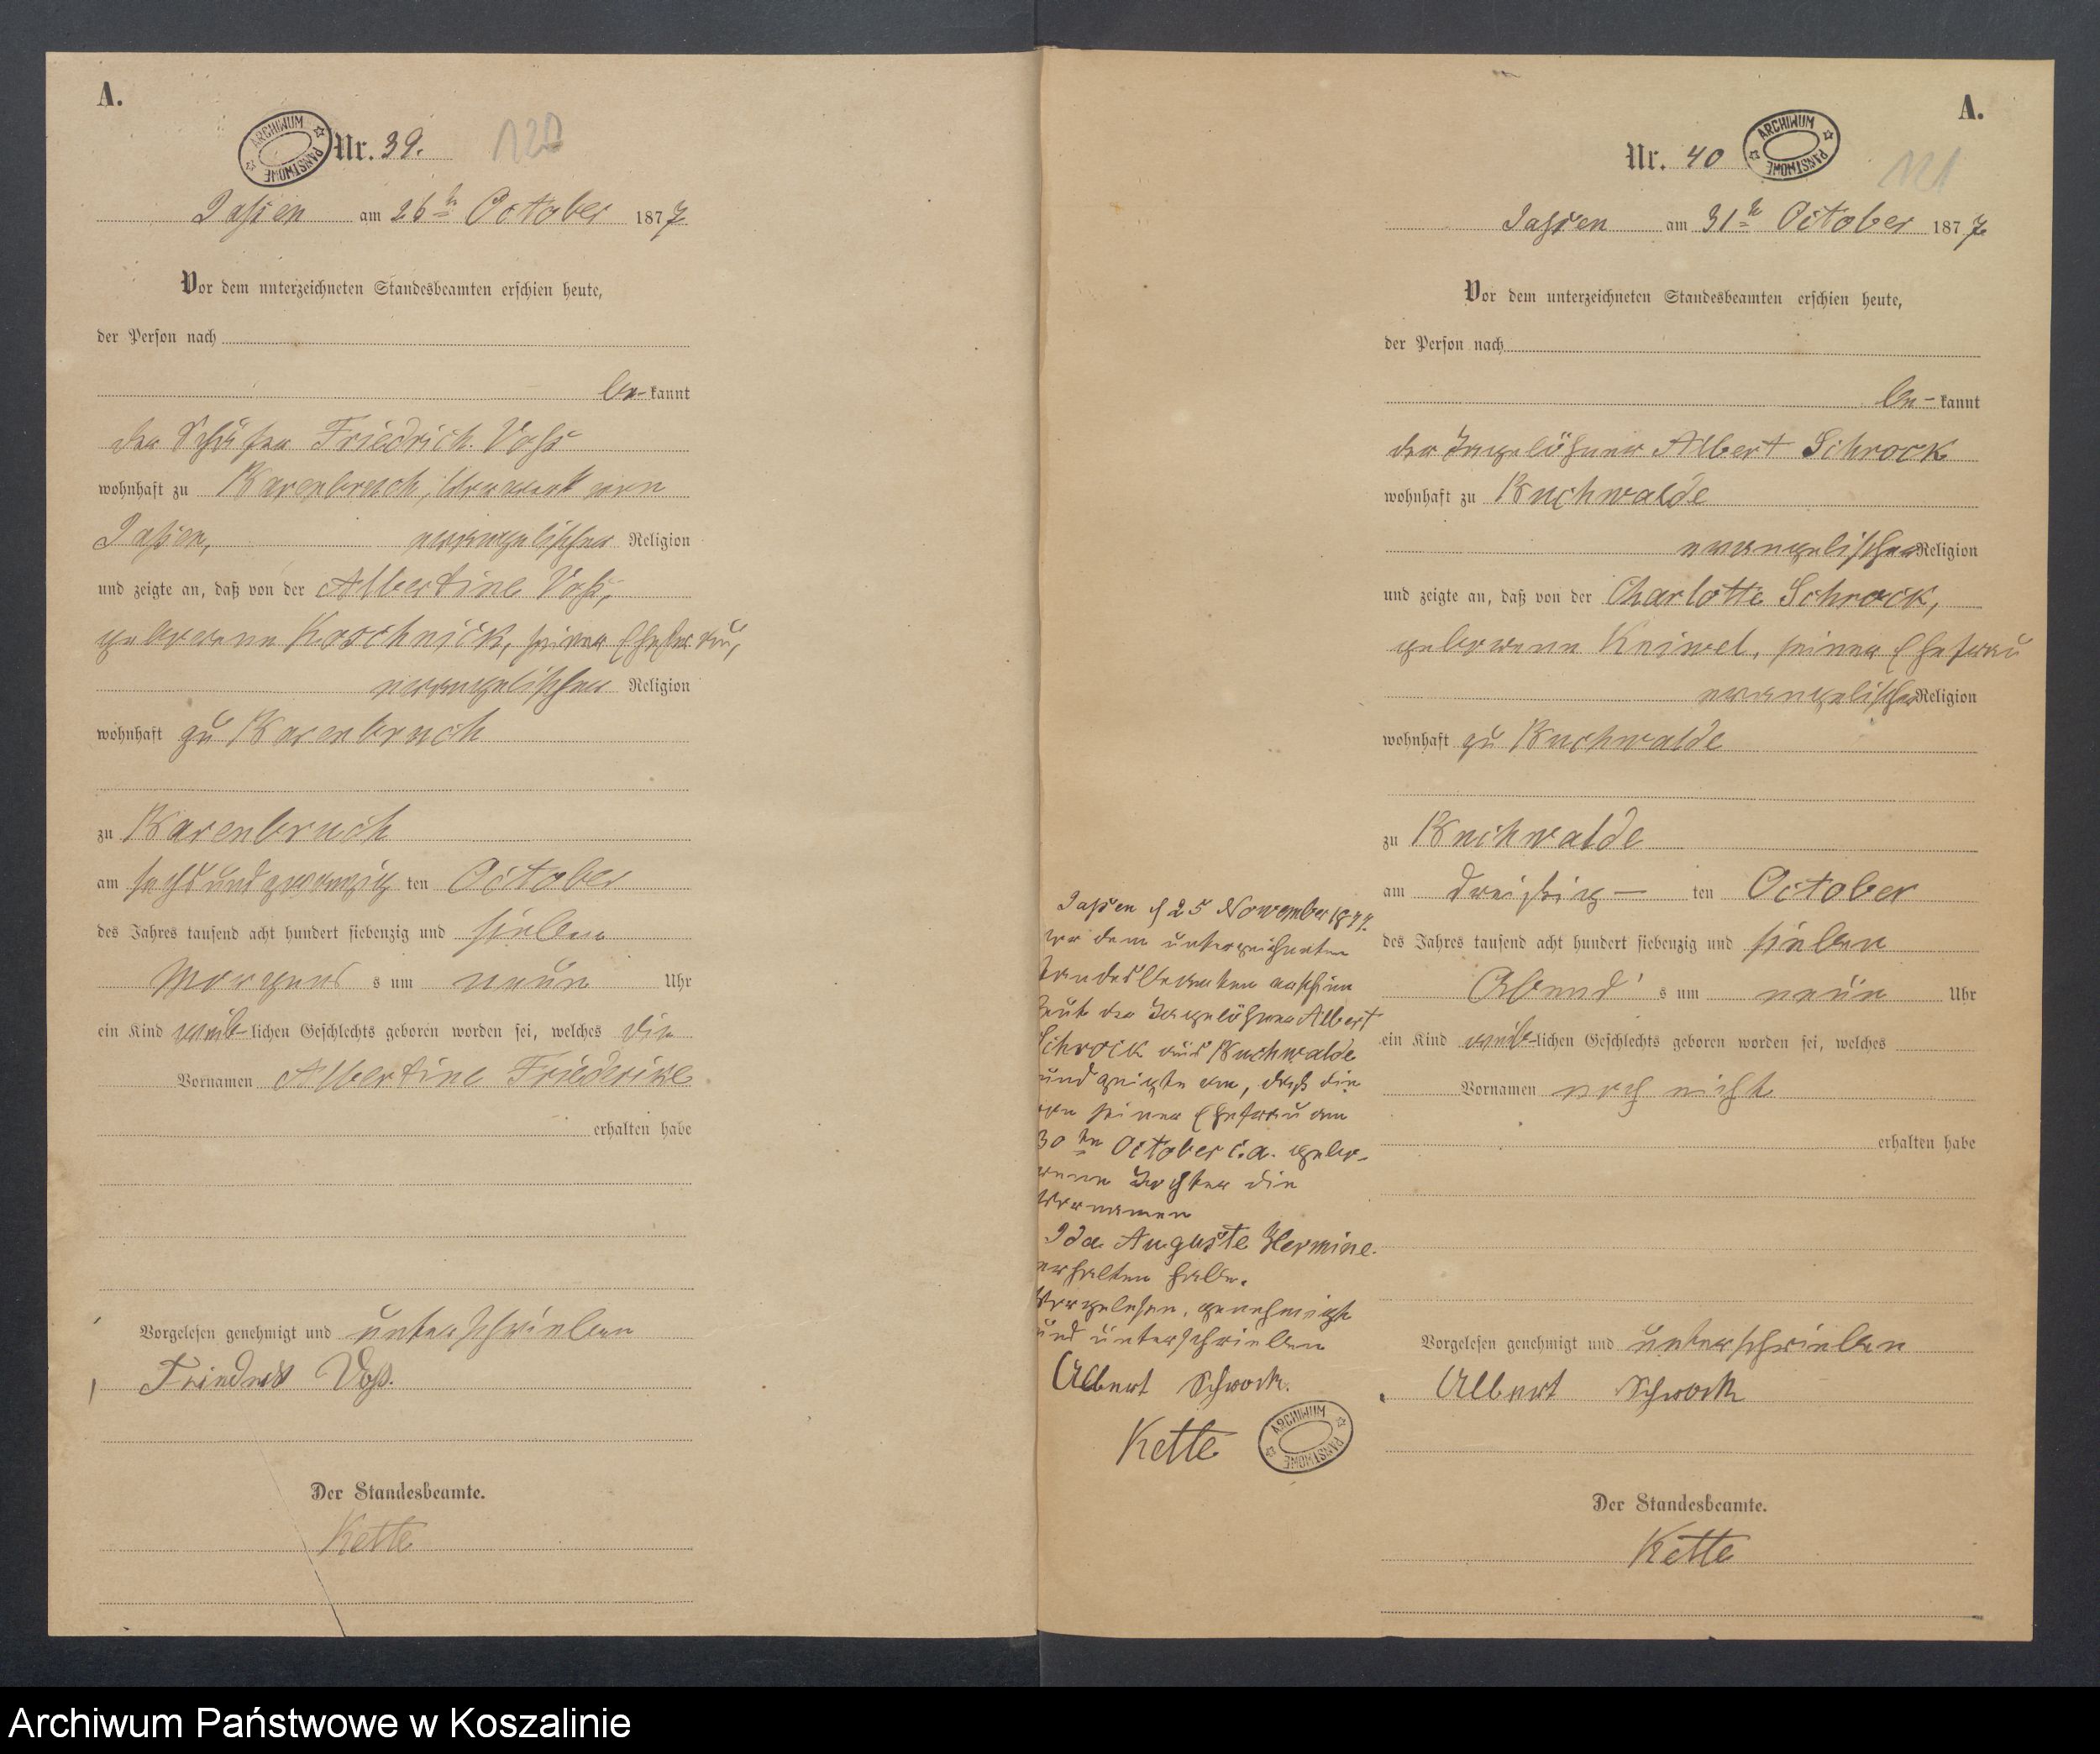 A.
ARCHIWUM PAŃSTWOWE
Nr. 39.
120
Jassen am 26ten October 1877
Vor dem unterzeichneten Standesbeamten erschien heute,
der Person nach
be-kannt
der Schäfer Friedrich Voss
wohnhaft zu Barenbruch, Vorwerk von
Jassen, evangelischer Religion
und zeigte an, daß von der Albertine Voss,
geborene Koschnick, seiner Ehefrau,
evangelischer Religion
wohnhaft zu Barenbruch
zu Barenbruch
am sechsundzwanzig ten October
des Jahres tausend acht hundert siebenzig und sieben
Morgens s um neun Uhr
ein Kind weib-lichen Geschlechts geboren worden sei, welches die
Vornamen Albertine Friederike
erhalten habe
Vorgelesen genehmigt und unterschrieben
Friedrich Voß.
Der Standesbeamte.
Kette
A.
Nr. 40
ARCHIWUM PAŃSTWOWE
121
Jassen am 31ten October 1877
Vor dem unterzeichneten Standesbeamten erschien heute,
der Person nach
be-kannt
der Tagelöhner Albert Schrock
wohnhaft zu Buchwalde
evangelischer Religion
und zeigte an, daß von der Charlotte Schrock,
geborene Kniwel, seiner Ehefrau
evangelischer Religion
wohnhaft zu Buchwalde
zu Buchwalde
am dreißig — ten October
des Jahres tausend acht hundert siebenzig und sieben
Abend's um neun Uhr
ein Kind weib-lichen Geschlechts geboren worden sei, welches
Vornamen noch nicht
erhalten habe
Vorgelesen genehmigt und unterschrieben
Albert Schrock
Der Standesbeamte.
Kette
Jassen d 25 November 1877.
vor dem unterzeichneten
Standesbeamten erschien
heute der Tagelöhner Albert
Schrock aus Buchwalde
und zeigte an, daß die
von seiner Ehefrau am
30ten October c.a. gebo-
rene Tochter die
Vornamen
Ida Auguste Hermine.
erhalten habe.
Vorgelesen, genehmigt
und unterschrieben
Albert Schrock.
Kette
ARCHIWUM PAŃSTWOWE
Archiwum Państwowe w Koszalinie